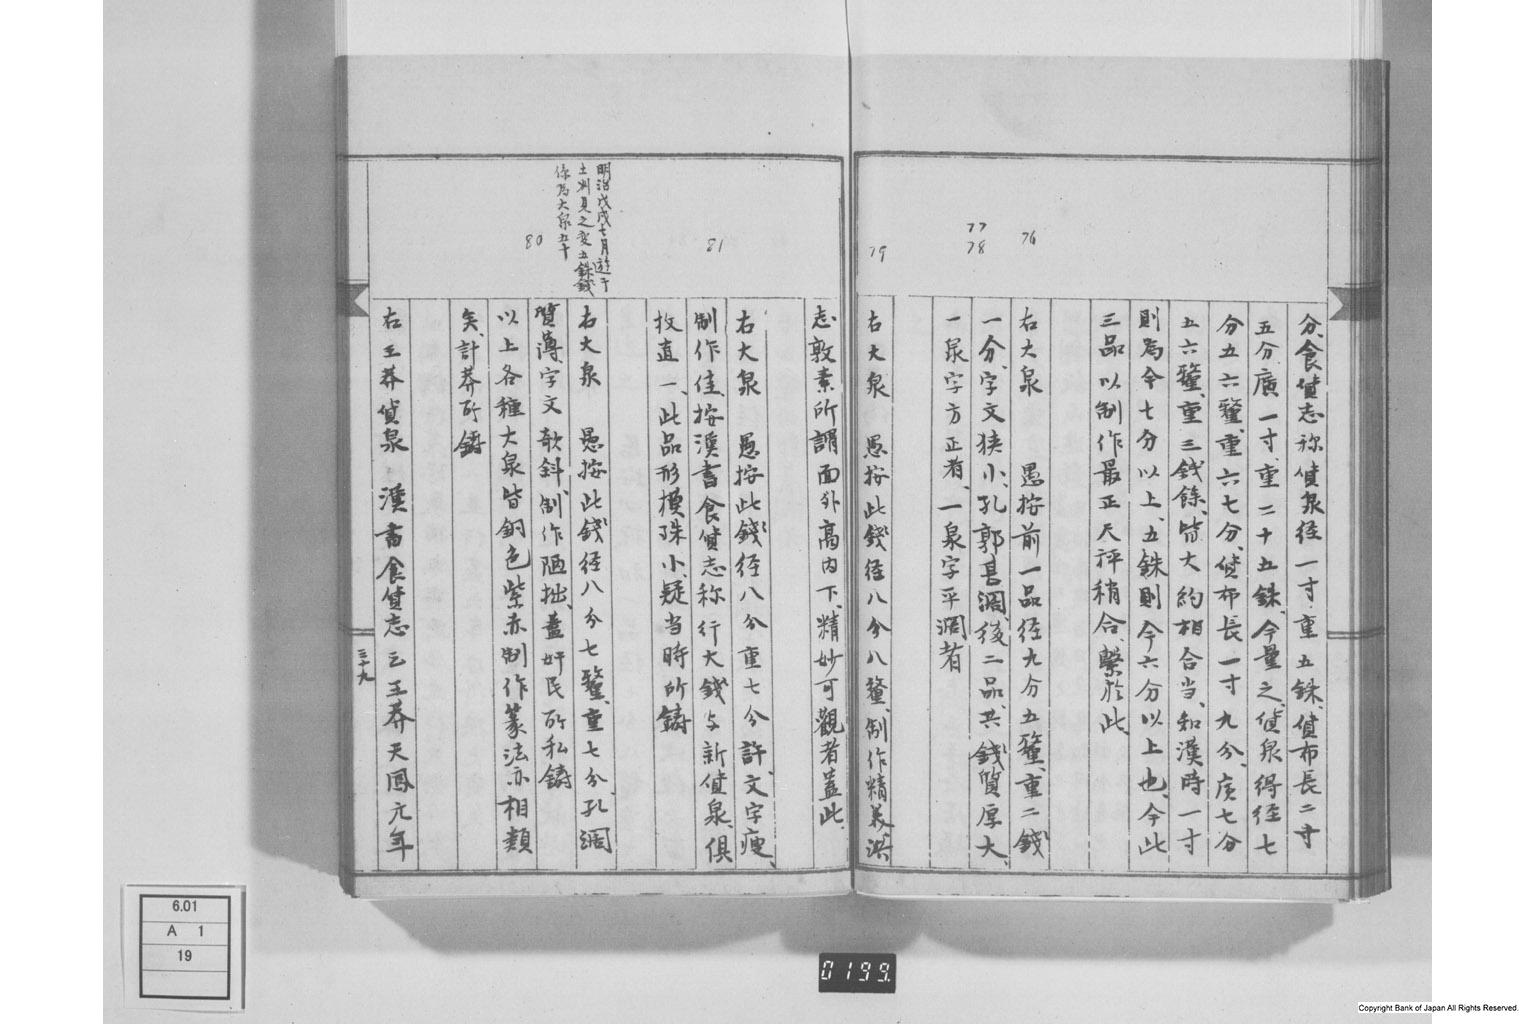 分、食貨志称貨泉径一寸、重五銖、貨布長二寸
五分、廣一寸、重二十五銖、今量之、貨泉得径七
分五六釐、重六七分、貨布長一寸九分、広七分
五六釐、重三銭餘、皆大約相合当、知漢時一寸
則為今七分以上、五銖則今六分以上也、今此
三品以制作最正天秤稍合、繫於此、
76
右大泉　愚按前一品径九分五釐、重二銭
一分、字文狭小、孔郭甚濶、後二品共銭質厚大、
77
78
一泉字方正者、一泉字平濶者
79
右大泉　愚按此銭径八分八釐、制作精美、洪
志敦素所謂面外高内下、精妙可觀者蓋此、
81
右大泉　愚按此銭径八分重七分許、文字痩、
制作佳、按漢書食貨志称行大銭与新貨泉、俱
枚直一、此品形模殊小、疑当時所鋳
明治戊戌七月遊于
土州見之変五銖銭
係為大泉五十
80
右大泉　愚按此銭径八分七釐、重七分、孔濶
質薄字文欹斜、制作陋拙、蓋奸民所私鋳
以上各種大泉皆銅色紫赤制作篆法亦相類
矣、計莽所鋳
右王莽貨泉　漢書食貨志云王莽天鳳元年
三十九
6.01
A 1
19
0199.
Copyright Bank of Japan All Rights Reserved.